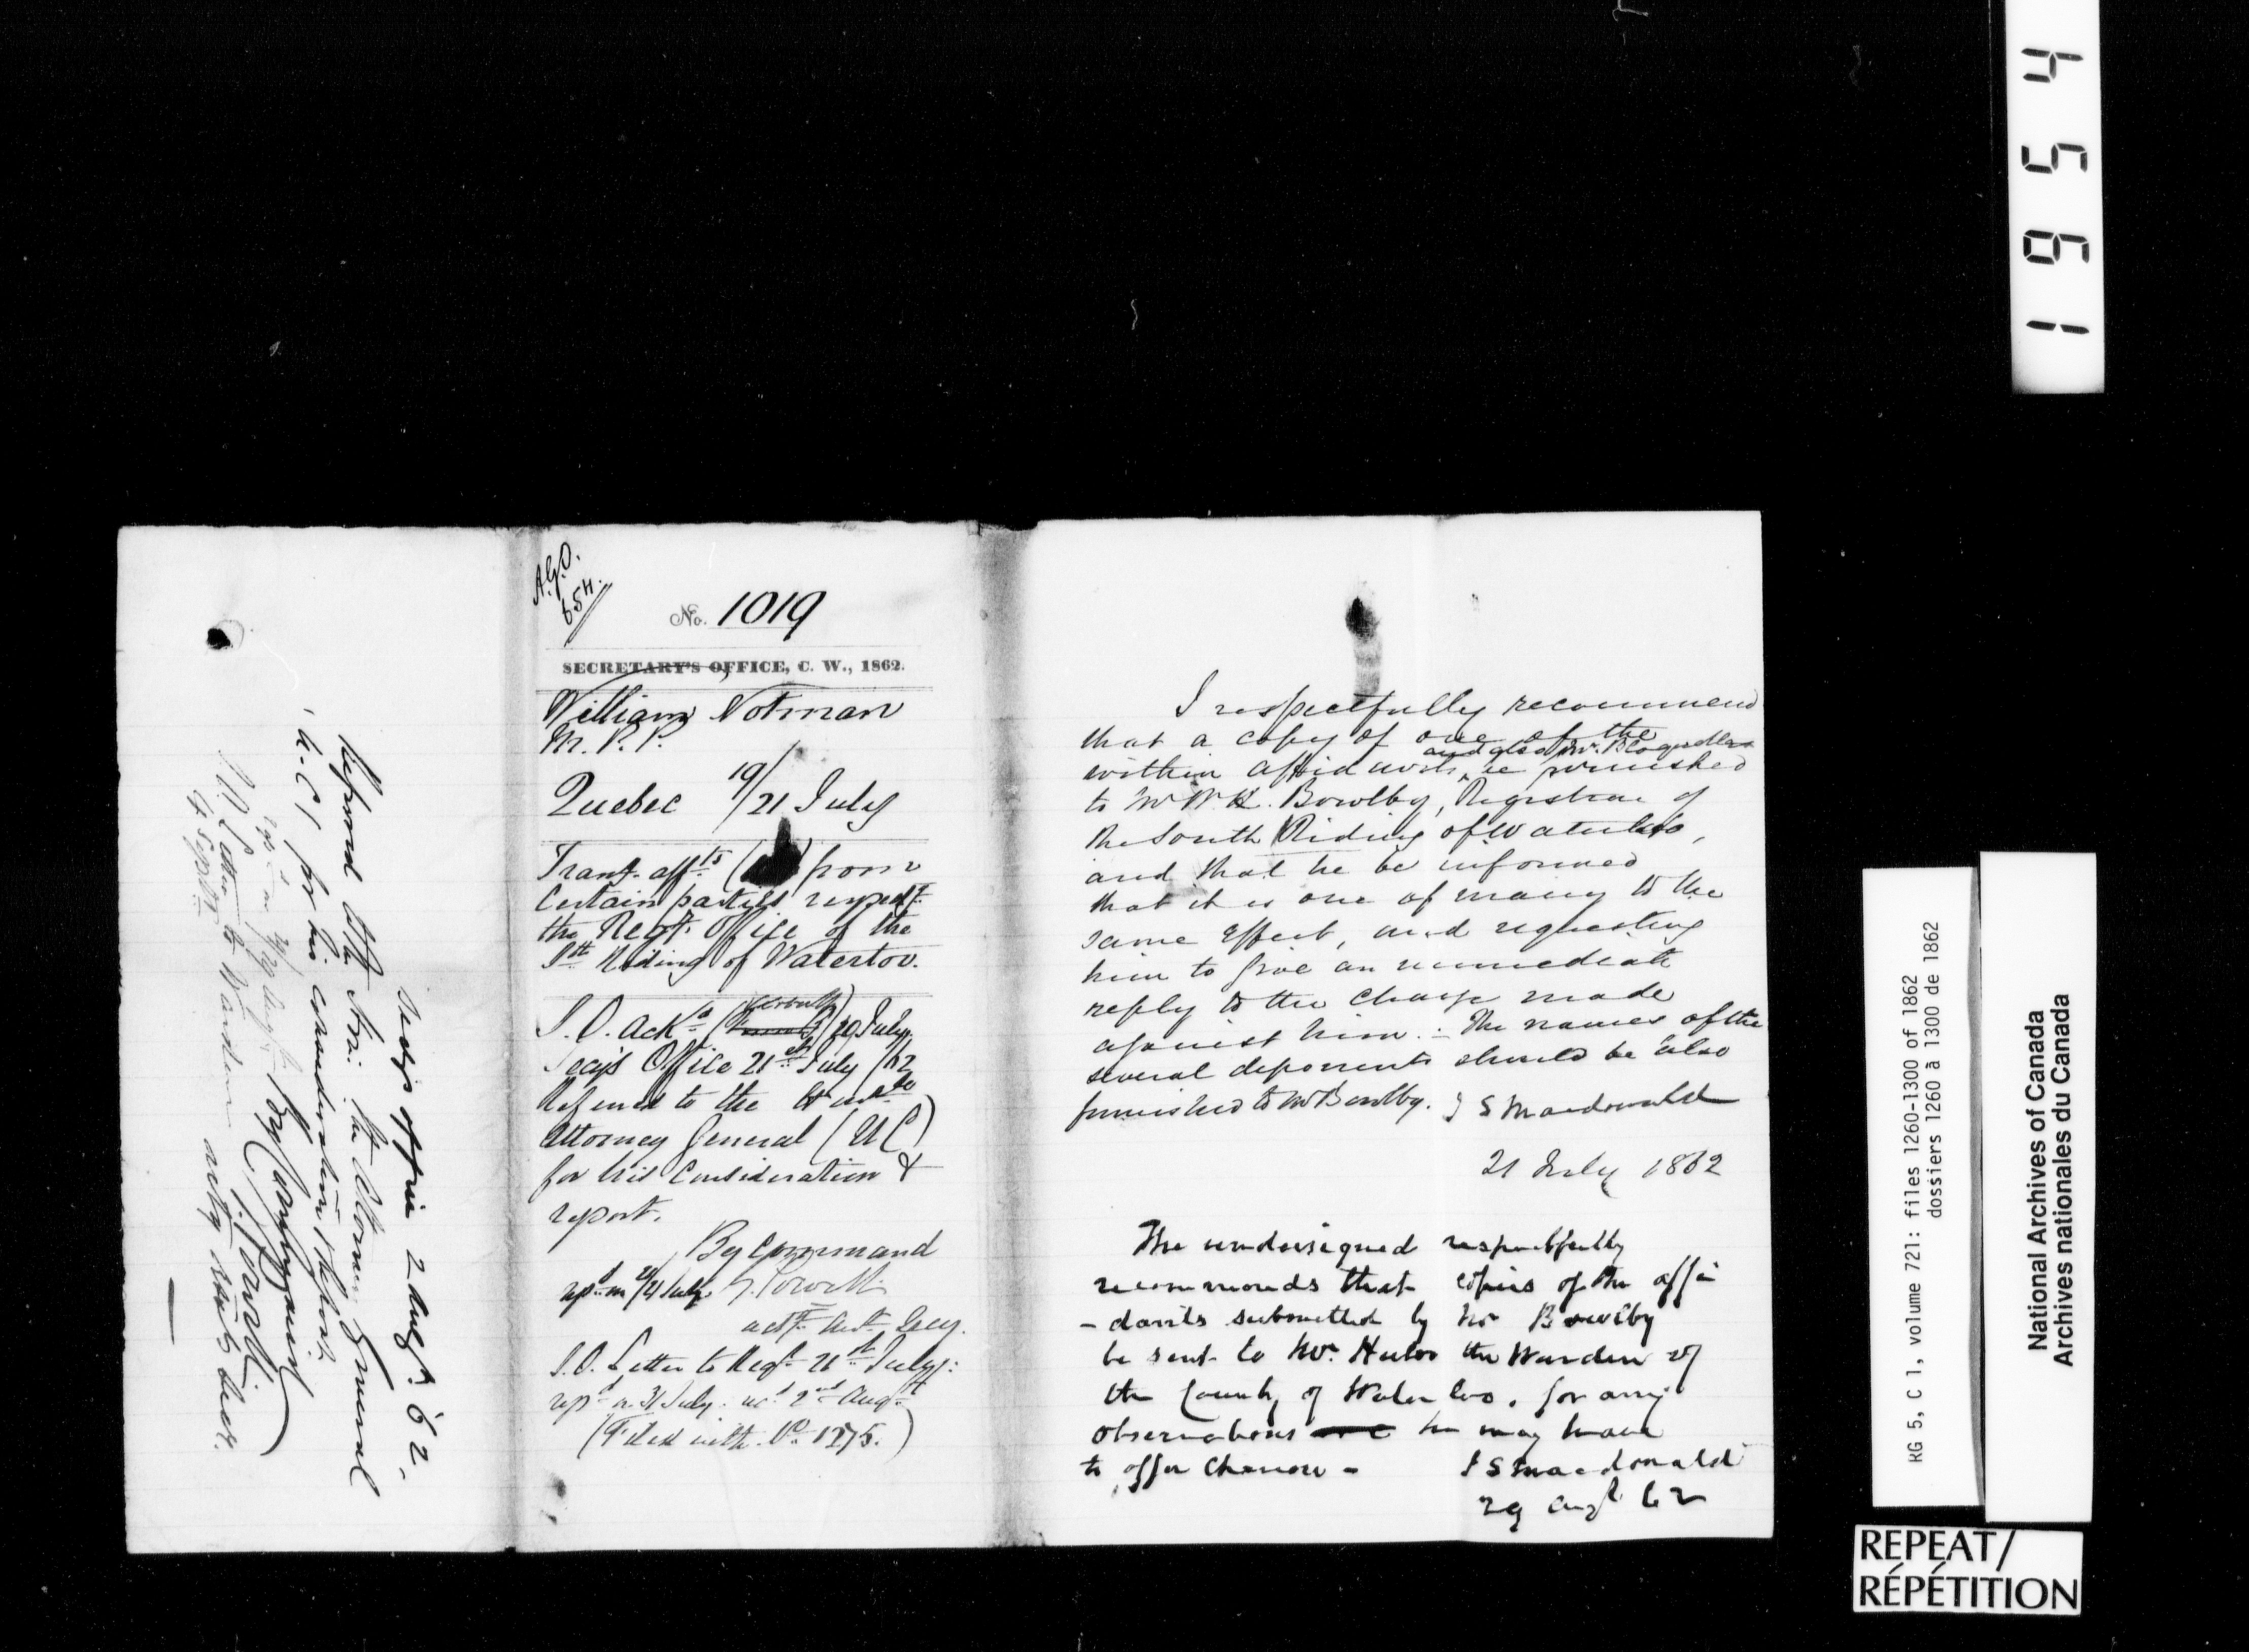 1954
A.G.O.
654
No. 1019
SECRETARY'S OFFICE, C. W., 1862.
William Notman
M. P. P.
Quebec 19/21 July
Trans. aff.ts ( ) from
Certain parties respect.
the Regt. Office of the
Sth. Riding of Waterloo.
S. O. Ackd ( ) 29 July
Secy's Office 21st July /62
Referred to the
Attorney General (U C)
for his Consideration &
report.
By Command
repd on 21/21 July
actg. Asst. Secy.
S.O. Letter to Regr. 21st July:
repd on 31 July. recd 2nd Augt
(Filed with No. 1275.)
Secy's Office 2 Augt. 62,
Referred to the Attorney General
U.C. for his consideration & report.
By Command
Letter to Warden
4 Septr.
I respectfully recommend
that a copy of one of the
and also Mr.
within affidavits, be furnished
to Mr W. H. Bowlby, Registrar of
the South Riding of Waterloo,
and that he be informed
that it is one of many to the
same effect, and requesting
him to give an immediate
reply to the charge made
against him. :- The names of the
several deponents should be also
furnished to Mr Bowlby. J S Macdonald
21 July 1862
The undersigned respectfully
recommends that copies of the affi
- davits submitted by Mr Bowlby
be sent to Mr. the Warden of
the County of Waterloo, for any
observations he may have
to offer thereon - J S Macdonald
29 Augt 62
RG 5, C 1, volume 721: files 1260-1300 of 1862
dossiers 1260 à 1300 de 1862
National Archives of Canada
Archives nationales du Canada
REPEAT/
RÉPÉTITION